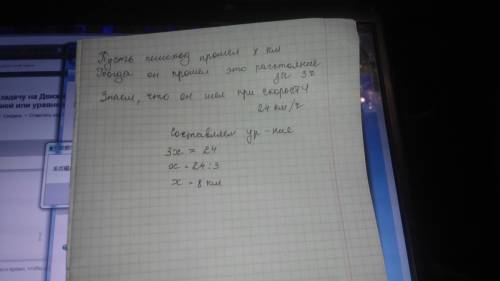 Пусть пешеход прошел x км
Тогда он прошел это расстояние
за 3ч
Знаем, что он шел при скорости
24 км/ч
Составляем ур-ние
3x = 24
x = 24:3
x = 8 км
задачу на Движ
ной или уравне